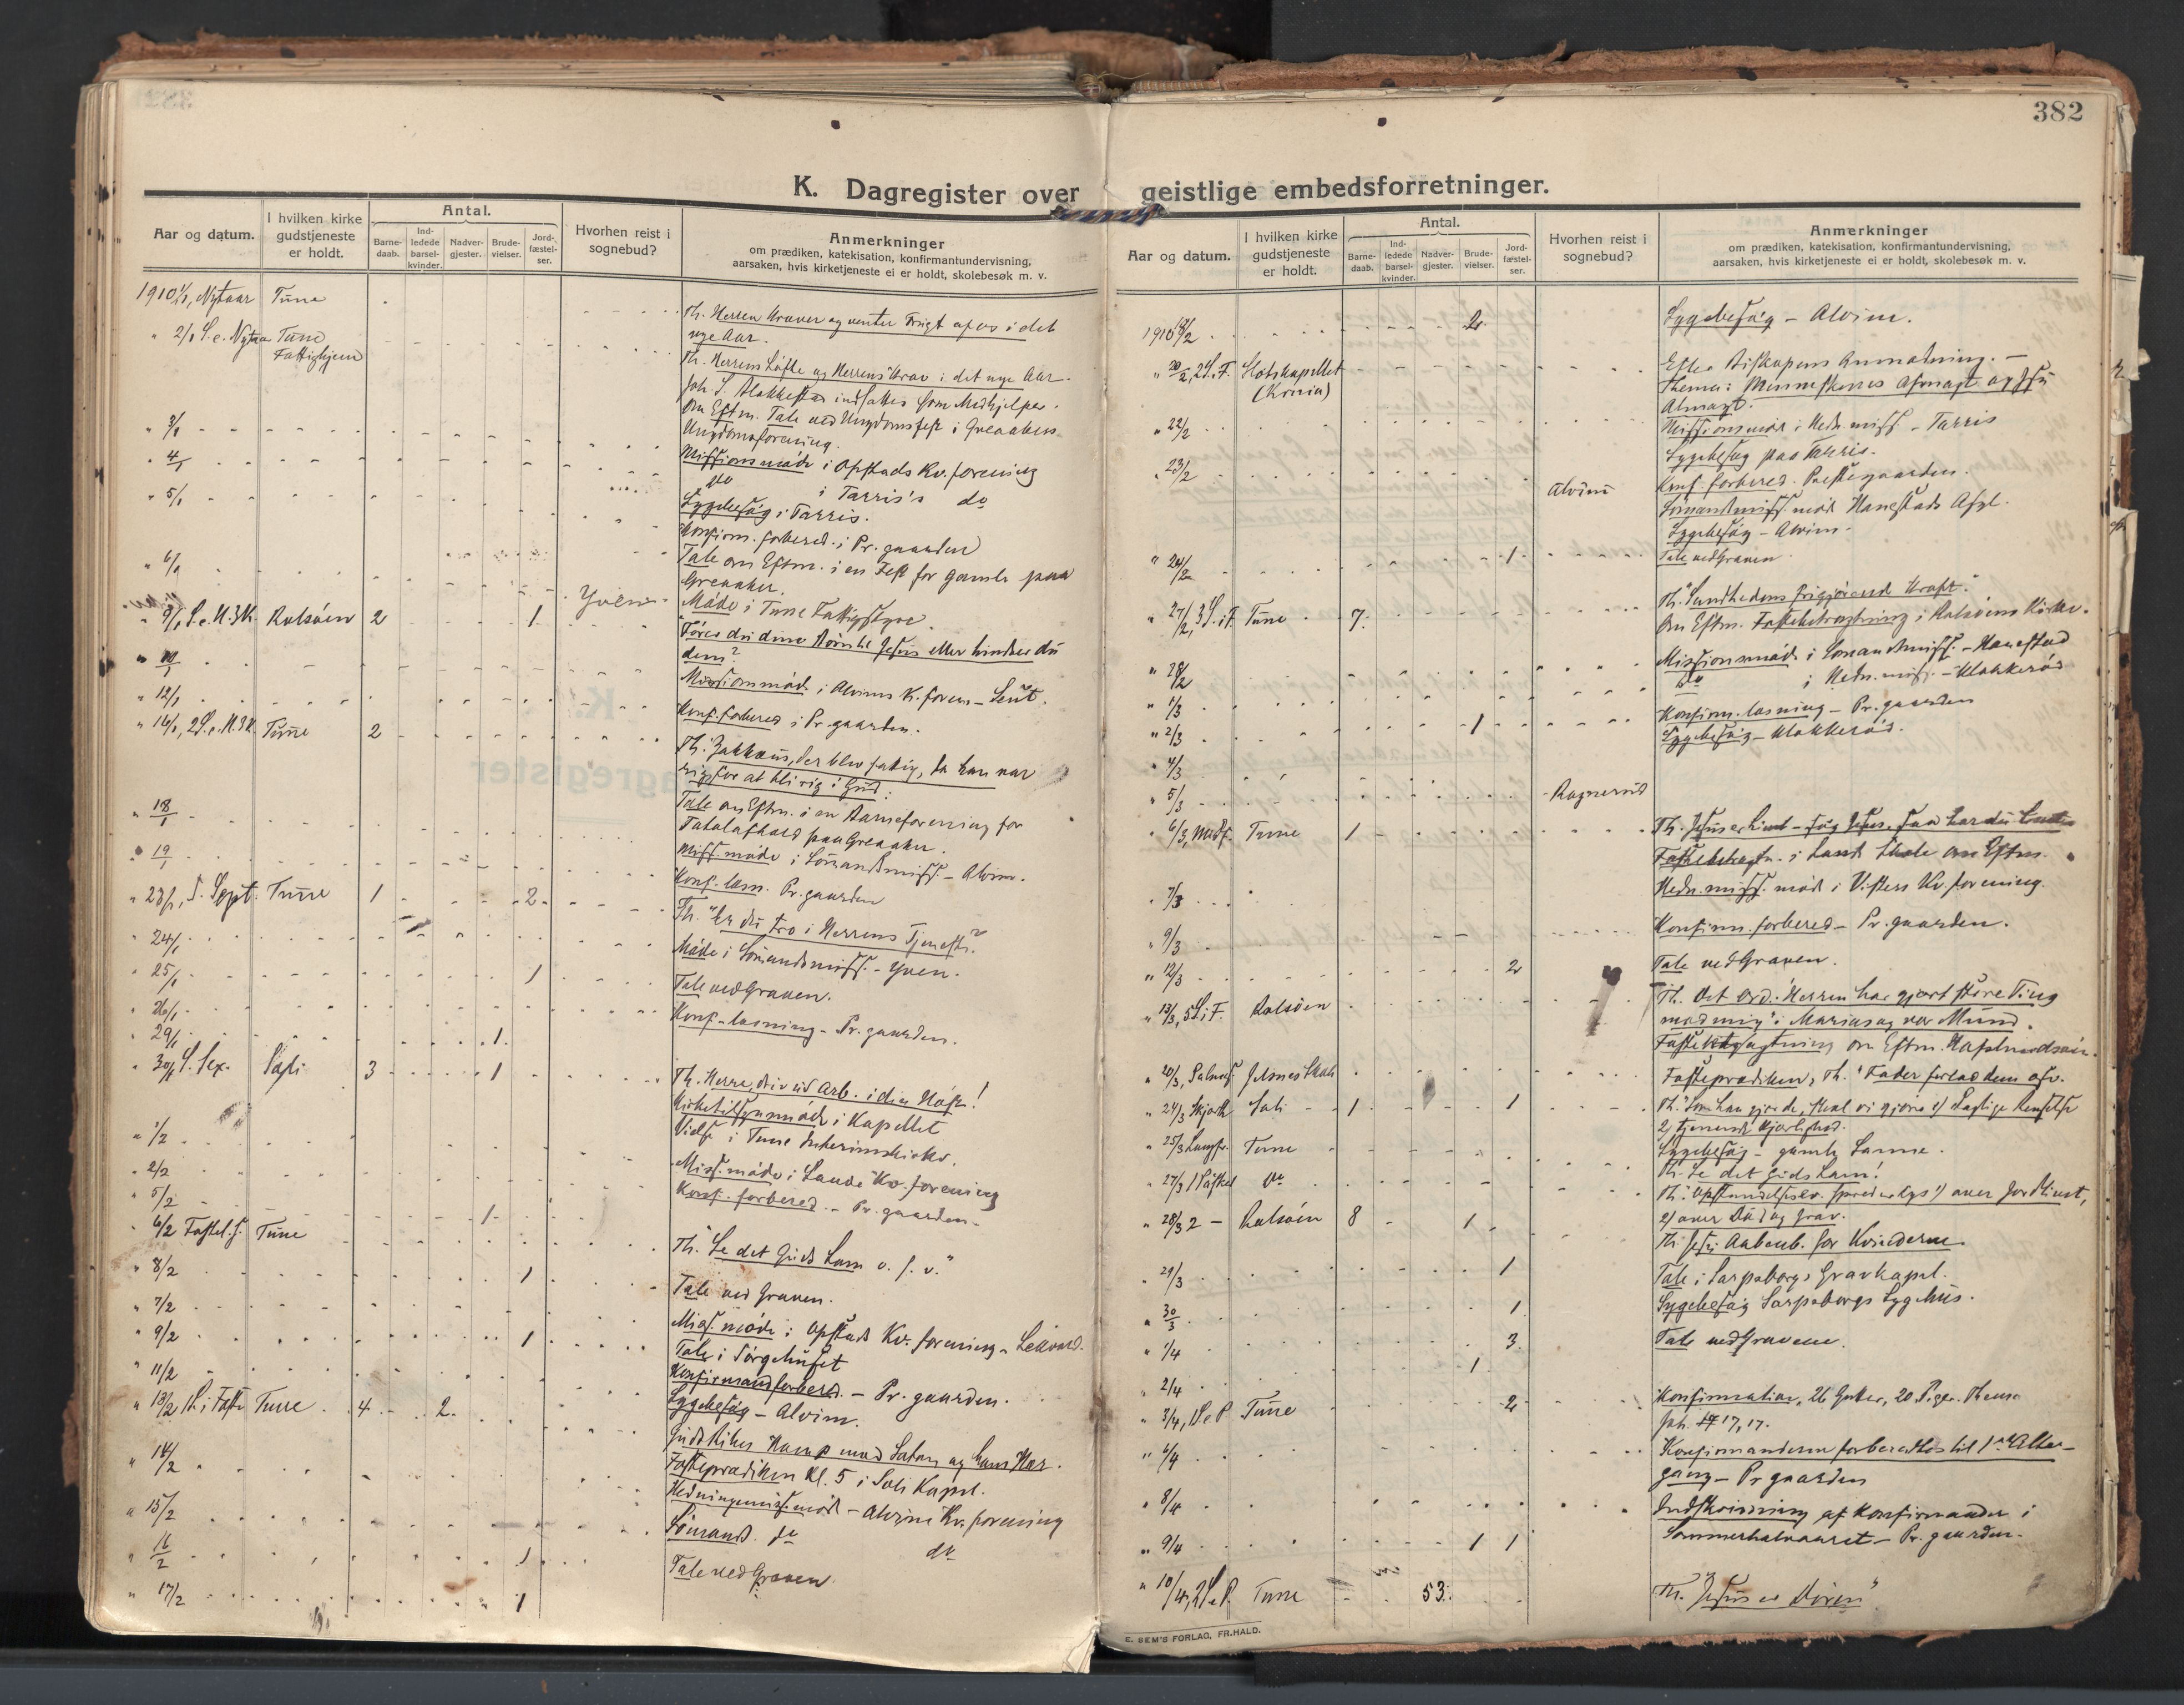 382
K. Dagregister over geistlige embedsforretninger.
Aar og datum.
I hvilken kirke gudstjeneste er holdt.
Antal.
Barnedaab.
Indledede barselkvinder.
Nadvergjester.
Brudevielser.
Jordfæstelser.
Hvorhen reist i sognebud?
Anmerkninger
om prædiken, katekisation, konfirmantundervisning,
aarsaken, hvis kirketjeneste ei er holdt, skolebesøk m. v.
1910 1/1, Nytaar Tune
Th. Herren kræver og venter Frugt af os i det
nye Aar.
" 2/1 S. e. Nytaar Tune
Fattighjem
Th. Herrens Løfte og Herrens Krav i det nye Aar.
Joh. S. Klokkestad indsættes som Medhjelper.
Om Eftm. Tale ved Ungdomsfest i Greaakers
Ungdomsforening.
" 3/1
Missionsmøde i Opstads Kv. forening
" 4/1
do i Tarris's do
Sygebesøg i Tarris.
" 5/1
Konfirm. forbered. i Pr. gaarden
Tale om Eftm. i en Fest for gamle paa
Greaaker.
" 6/1
Yven
Møde i Tune Fattigstyre.
" 9/1 S. e. H. 3 K. Rolsøen 2 1
Fører du dine Børn til Jesus eller hindrer du
dem?
Missionsmøde i Alvims K. foren
" 12/1
Konf. forbered i Pr. gaarden.
" 2 S. e. H. 3 K. Tune 2
Th. Zakkæus, der blev fattig, da han var
rig for at bli rig i Gud.
Tale om Eftm. i en Barneforening for
Totalafhold paa Greaaker.
" 18/1
Miss. møde i Sømandsmiss. - Alvim.
" 19/1
Konf. læsn. Pr. gaarden
" 23/1, S. Sept. Tune 1 2
Th. "Er du tro i Herrens Tjeneste?"
" 24/1
Møde i Sømandsmiss. - Yven.
" 25/1 1
Tale ved Graven.
" 26/1
Konf-læsning - Pr. gaarden.
" 29/1 1
" 30/1 S. Sex. Soli 3 1
Th. Herre, driv ud Arb. i din Høst!
Kirketilsynsmøde i Kapellet
Vielse i Tune Interimskirke.
" 1/2
Miss. møde i Lande Kv. forening
" 2/2
Konf. forbered. - Pr. gaarden.
" 5/2 1
" 6/2 Fastel. s. Tune
Th. "Se det Guds Lam o. s. v."
" 8/2 1
Tale ved Graven.
" 7/2
Miss. møde i Opstad Kv. forening
" 9/2 1
Tale i Sørgehuset
Konfirmandforbered. - Pr. gaarden.
" 11/2
Sygebesøg - Alvim.
" 13/2 1 S. i Faste Tune 4 2
Guds Rikes Kamp mod Satan og hans Hær.
Fasteprædiken Kl. 5 i Soli Kapel.
" 14/2
Hedningemiss. møde - Alvims Kv. forening
" 15/2
Sømand. do do
" 16/2 1
Tale ved Graven.
" 17/2 1
Aar og datum.
I hvilken kirke gudstjeneste er holdt.
Antal.
Barnedaab.
Indledede barselkvinder.
Nadvergjester.
Brudevielser.
Jordfæstelser.
Hvorhen reist i sognebud?
Anmerkninger
om prædiken, katekisation, konfirmantundervisning,
aarsaken, hvis kirketjeneste ei er holdt, skolebesøk m. v.
1910 2
Sygebesøg - Alvim.
" 20/2, 2 S. i F. Slotskapellet
(Kr.ania)
Efter Biskopens Anmodning. -
Thema: Menneskenes Afmagt og Jesu
Almagt.
" 22/2
Missionsmøde i Hedn. miss. - Tarris
Sygebesøg paa Tarris.
" 23/2
Alvim
Konf. forbered. Prestegaarden.
Sømandsmiss. møde Hanestads Asyl.
Sygebesøg - Alvim.
" 24/2 1
Tale ved Graven
" 27/2, 3 S. i F. Tune 7
Th. "Sandhedens frigjørende Kraft."
Om Eftm. Fastebetragtning i Rolsøens Kirke.
" 28/2
Missionsmøde i Sømandsmiss. - Hanestad
" 1/3
do i Hedn. miss. - Klokkerød
" 2/3 1
Konfirm. læsning - Pr. gaarden
Sygebesøg - Klokkerød.
" 4/3
" 5/3 Ragnerud
" 6/3, Midf. Tune 1
Fastebetragtn. i Lande Skole om Eftm.
" 7/3
Hedn. miss. møde i Visters Kv. forening.
" 9/3
Konfirm. forbered - Pr. gaarden.
" 12/3 2
Tale ved Graven.
" 13/3, 5 S. i F. Rolsøen
Th. Det Ord: Herren har gjort store Ting
mod mig" i Marias og vor Mund.
Fastebetragtning om Eftm.
" 20/3, Palmes. Skole
Fasteprædiken, Th. "Fader forlad dem osv.
" 24/3 Skjærth. Soli 1 1
2) tjenende Kjærlighed.
" 25/3 Langfr. Tune
Sygebesøg - gamle Sanne.
Th. Se det Guds Lam!
" 27/3 1 Paaske do
2) over Død og Grav.
" 28/3 2 - Rolsøen 8 1
Th. Jesu Aabenb. for Kvinderne
" 29/3 1
Tale i Sarpsborgs Gravkapel.
" 30/3 1
Sygebesøg Sarpsborgs Sygehus.
" 1/4 3
Tale ved Gravene.
" 2/4 1
" 3/4, 1 S e P. Tune 2
Konfirmation, 26 Gutter, 20 Piger. Thema
Joh. 17, 17.
" 6/4
Konfirmanderne forberedtes til 1ste Alter-
gang - Pr gaarden
" 8/4
Indskrivning af Konfirmander i
Sommerhalvaaret - Pr. gaarden.
" 9/4 1 1
" 10/4, 2 S e P. Tune 53
Th. "Jesus er Døren"
E. SEM'S FORLAG, FR.HALD.